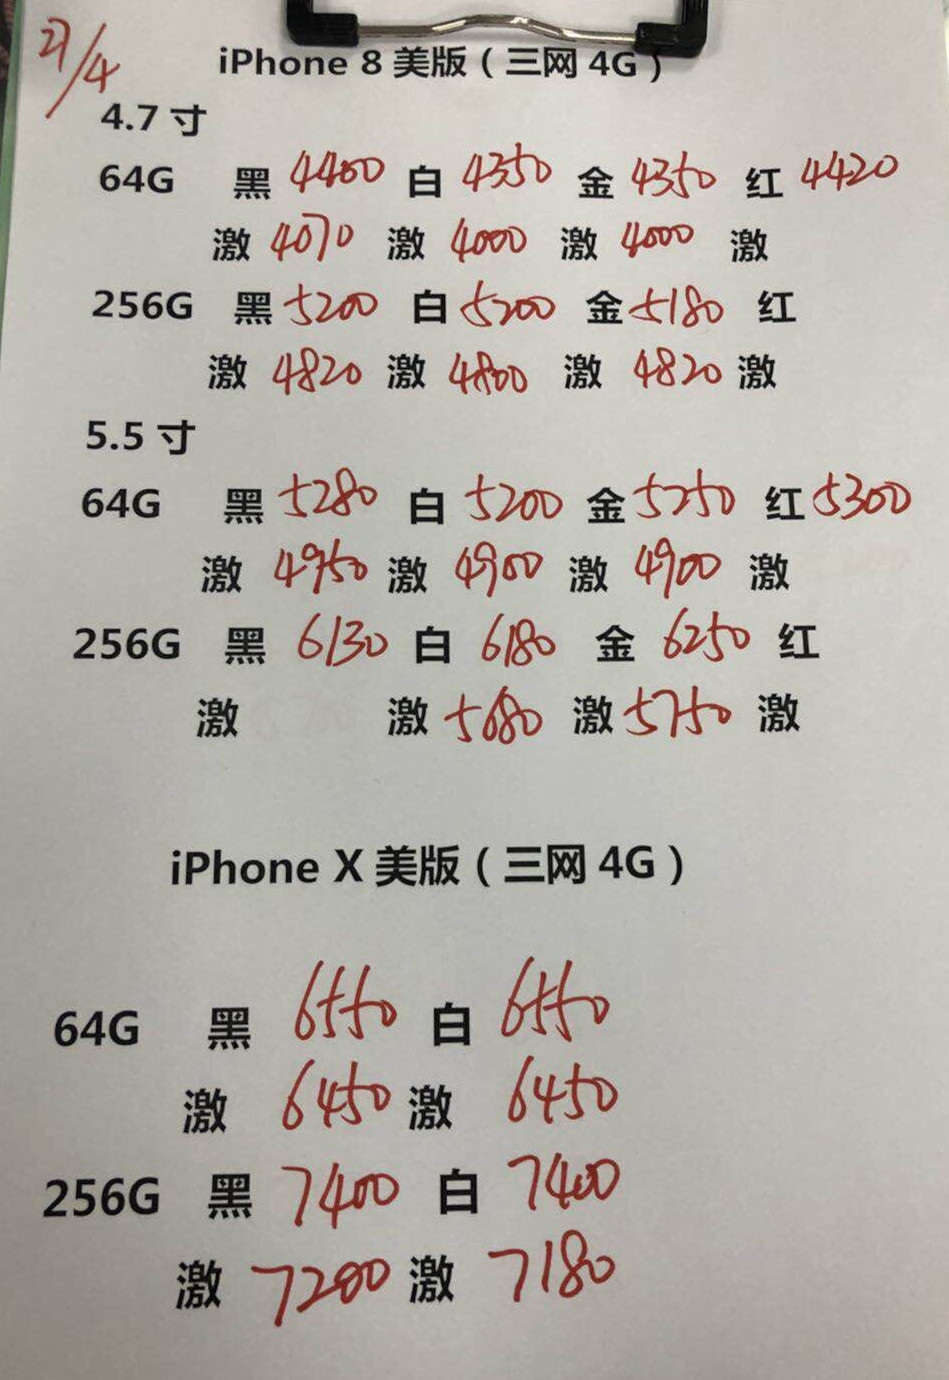 21/4
iPhone 8 美版（三网 4G）
4.7 寸
64G 黑 4400 白 4350 金 4350 红 4420
激 4070 激 4000 激 4000 激
256G 黑 5200 白 5200 金 5180 红
激 4820 激 4800 激 4820 激
5.5 寸
64G 黑 5280 白 5200 金 5250 红 5300
激 4950 激 4900 激 4900 激
256G 黑 6130 白 6180 金 6250 红
激 激 5680 激 5750 激
iPhone X 美版（三网 4G）
64G 黑 6550 白 6550
激 6450 激 6450
256G 黑 7400 白 7400
激 7200 激 7180